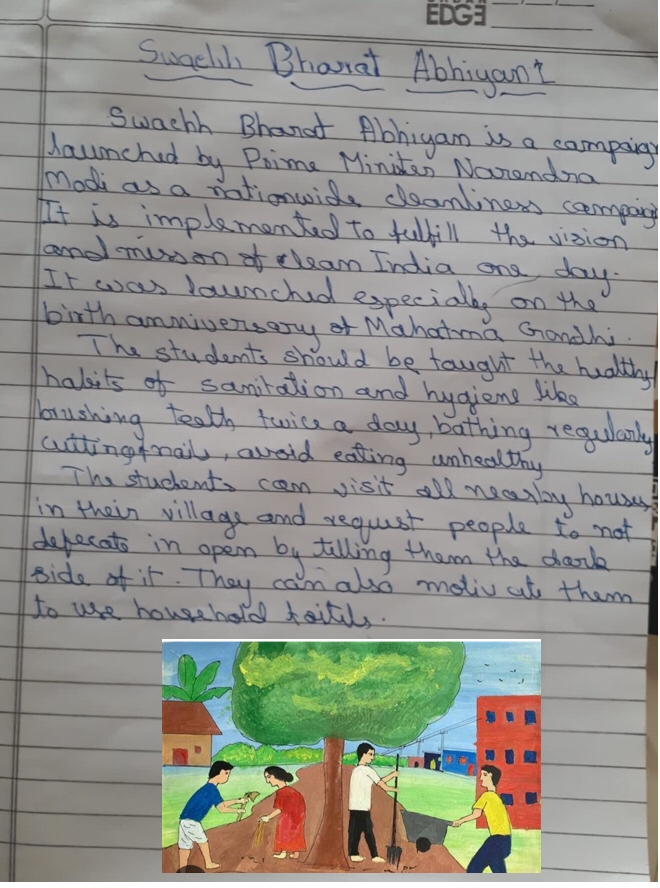 EDGE
Swachh Bharat Abhiyan
Swachh Bharat Abhiyan is a campaign
launched by Prime Miniter Narendra
Modi as a nationwide cleanliness campaign
It is implemented to fulfill the vision
and misson of clean India one day.
It was launched especially on the
birth anniversery of Mahatma Gandhi.
The students should be taught the healthy
habits of sanitation and hygiene like
brushing teeth twice a day, bathing regularly
cutting nails, avoid eating unhealthy
The students can visit all nearby houses
in their village and request people to not
defecate in open by telling them the dark
side of it. They can also motivate them
to use household toitels.